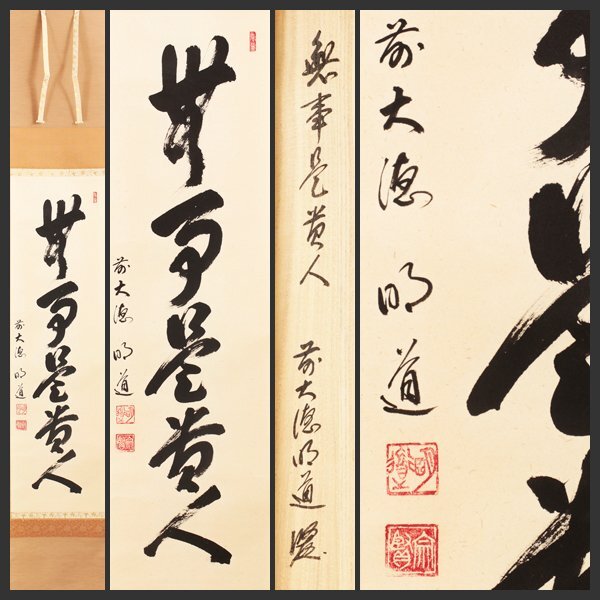 無事是貴人
前大徳 明道
無事是貴人
前大徳 明道
無事是貴人 前大徳明道 書
前大徳 明道